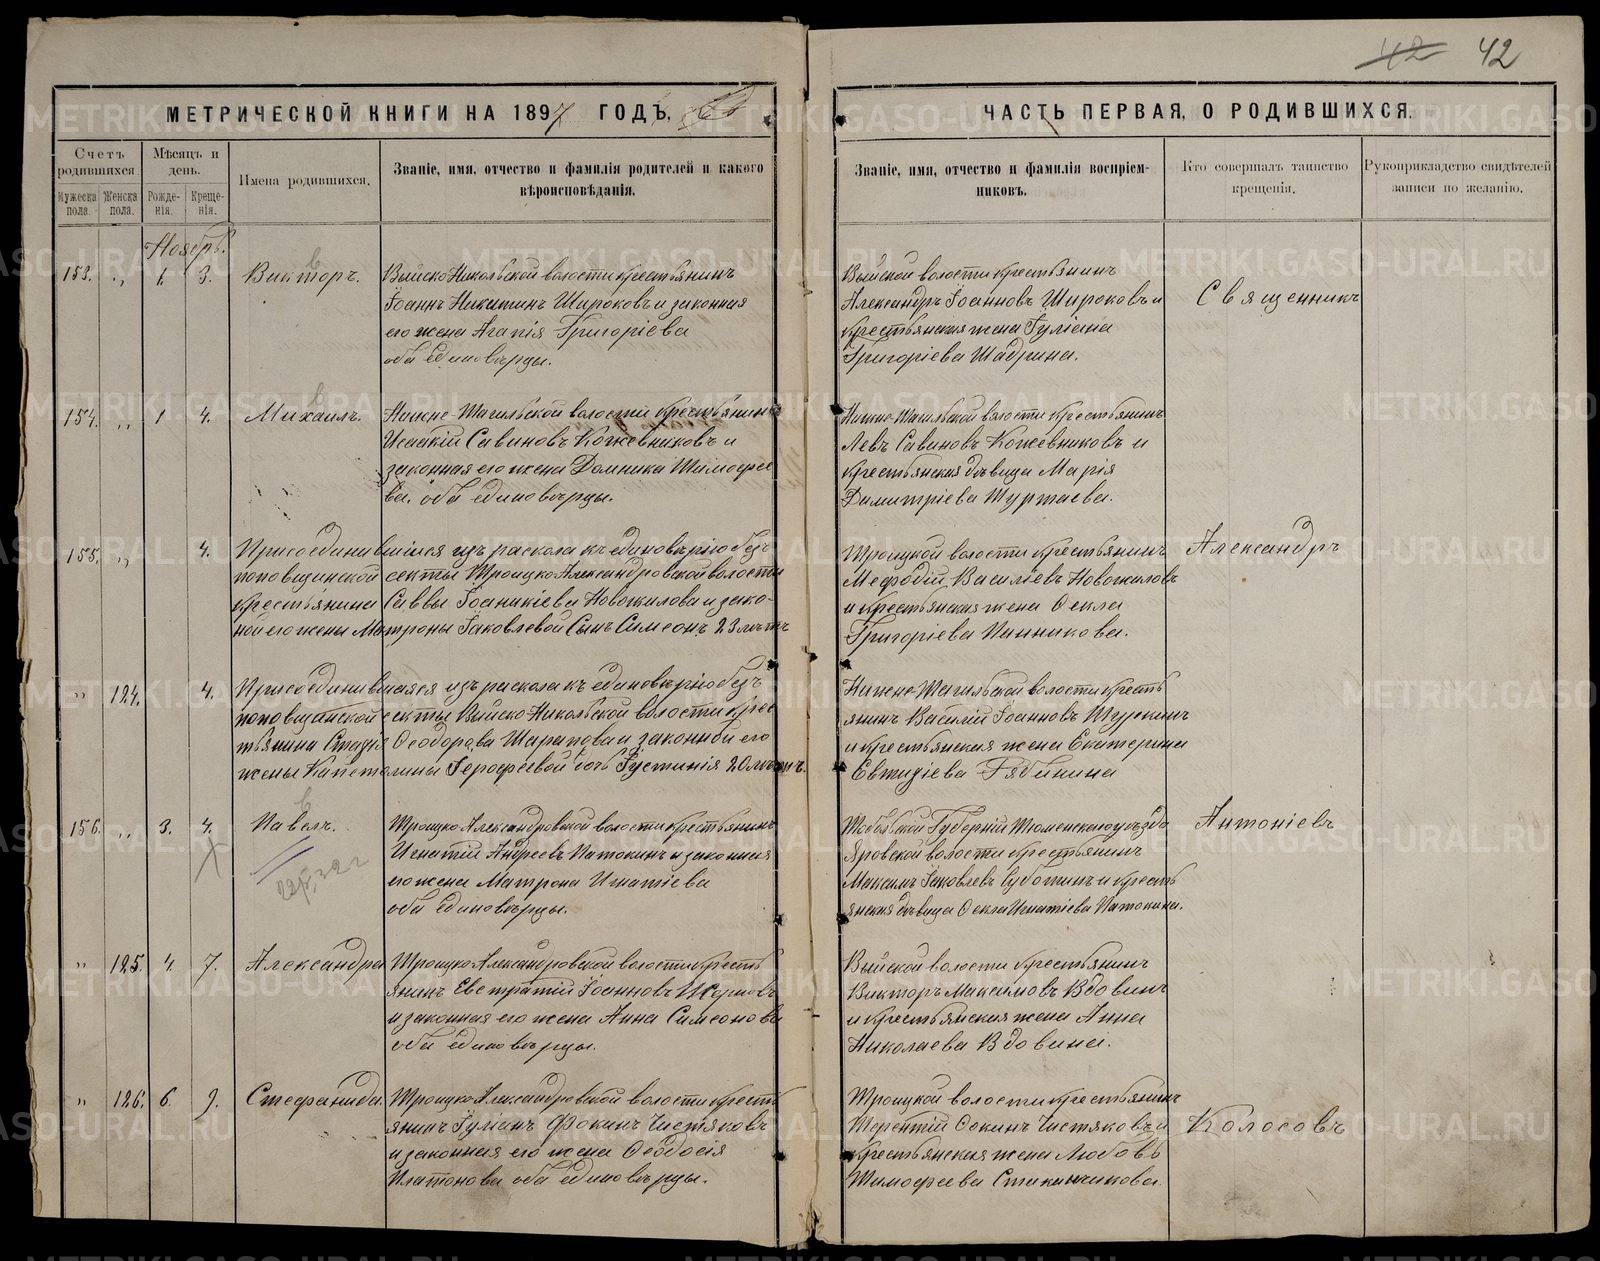 42 42
МЕТРИЧЕСКОЙ КНИГИ НА 1897 ГОДЪ,
Счетъ родившихся.
Мужеска пола.
Женска пола.
Мѣсяцъ и день.
Рожде-
нія.
Креще-
нія.
Имена родившихся.
Званіе, имя, отчество и фамилія родителей и какого
вѣроисповѣданія.
Ноябрь.
153. „ 1. 3. Викторъ.
Выйско-Никольской волости крестьянинъ
Іоаннъ Никитинъ Широковъ и законная
его жена Агапія Григоріева
оба единовѣрцы.
154. „ 1 4. Михаилъ.
Нижне-Тагильской волости крестьянинъ
Исаакій Савиновъ Кожевниковъ и
законная его жена Домника Тимофее
ва. оба единовѣрцы.
155. „ 4. Присоединившійся изъ раскола къ единовѣрію без
поповщинской секты Троицко Александровской волости
крестьянина Саввы Іоаникіева Новожилова и зако-
ной его жены Матроны Іаковлевой Сынъ Симеонъ 23 лѣтъ
„ 124. 4. Присоединившаяся изъ раскола къ единовѣрію без
поповщинской секты Выйско-Никольской волости крес
тьянина Стахія Ѳеодорова Шарапова и законной его
жены Капетолины Герофеевой дочь Іустинія 20 лѣтъ.
156. „ 3. 4. Павелъ.
Троицко Александровской волости крестьянинъ
Игнатій Андреевъ Патокинъ и законная
его жена Матрона Игнатіева
оба единовѣрцы.
„ 125. 4. 7. Александра
Троицко Александровской волости кресть
янинъ Евстратій Іоанновъ
и законная его жена Анна Симеонова
оба единовѣрцы.
„ 126. 6. 9. Стефанида.
Троицко Александровской волости кресть
янинъ Іуліанъ Фокинъ Чистяковъ
и законная его жена Ѳеодосія
Платонова оба единовѣрцы.
ЧАСТЬ ПЕРВАЯ, О РОДИВШИХСЯ.
Званіе, имя, отчество и фамилія воспріем-
никовъ.
Кто совершалъ таинство
крещенія.
Рукоприкладство свидѣтелей
записи по желанію.
Выйской волости крестьянинъ
Александръ Іоанновъ Широковъ и
крестьянская жена Іуліана
Григоріева Шадрина.
Священникъ
Нижне-Тагильской волости крестьянинъ
Левъ Савиновъ Кожевниковъ и
крестьянская дѣвица Марія
Димитріева Шуртаева.
Троицкой волости крестьянинъ
Мефодій Василіевъ Новожиловъ
и крестьянская жена Ѳекла
Григоріева Панникова.
Александръ
Нижне-Тагильской волости кресть
янинъ Василій Іоанновъ
и крестьянская жена Екатерина
Евтихіева Рябинина
Тобольской Губерніи Тюменскаго уѣзда
Яровской волости крестьянинъ
Максимъ Іаковлевъ Субботинъ и кресть
янская дѣвица Ѳекла Игнатіева Патокина.
Антоніевъ
Выйской волости крестьянинъ
Викторъ Максимовъ Вдовинъ
и крестьянская жена Анна
Николаева Вдовина.
Троицкой волости крестьянинъ
Терентій Ѳокинъ Чистяковъ и
крестьянская жена Любовь
Тимофеева Стаканчикова.
Колосовъ
METRIKI.GASO-URAL.RU